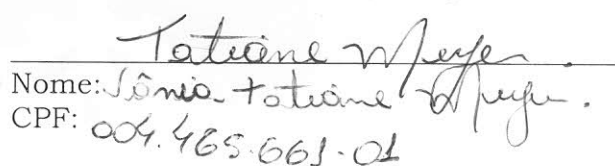 Tatiane Meyer.
Nome: Sônia Tatiane Meyer.
CPF: 004.465.661-01